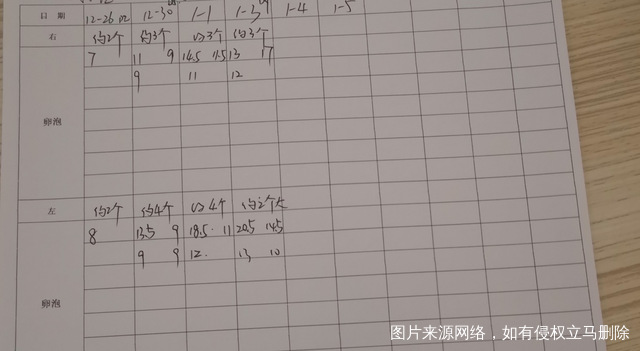 日 期 12-26 12-30 1-1 1-3 1-4 1-5
右 约2个 约3个 约3个 约3个
7 11 9 14.5 13 17
9 11 12
卵泡
左 约2个 约4个 约4个 约2个大
8 13.5 9 18.5 11 20.5 14.5
9 9 12 13 10
卵泡
图片来源网络，如有侵权立马删除